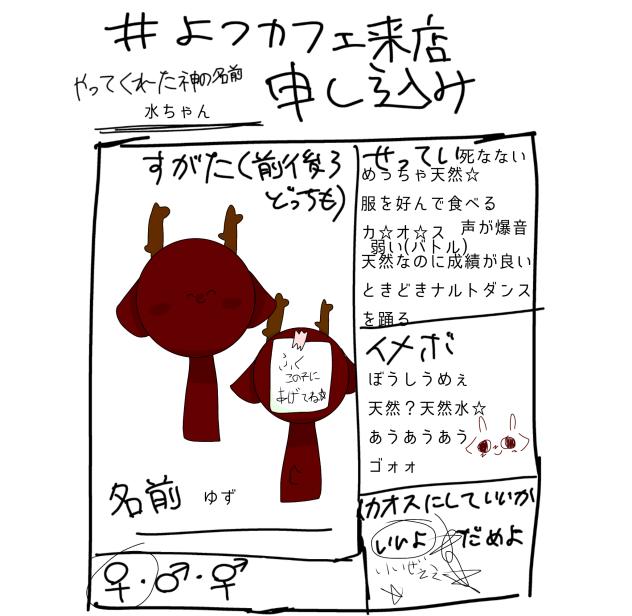 #よつカフェ来店
申し込み
やってくれた神の名前
水ちゃん
すがた(前後ろ
どっちも)
ふく
このに
あげてね
名前 ゆず
♀・♂・⚥
せってい 死なない
めうちゃ天然☆
服を好んで食べる
カ☆オ☆ス 声が爆音
弱い(バトル)
天然なのに成績が良い
ときどきナルトダンス
を踊る
イメボ
ぼうしうめぇ
天然?天然水☆
あうあうあう
ゴォォ
カオスにしていいか
いいよ だめよ
いいぜぇぇ